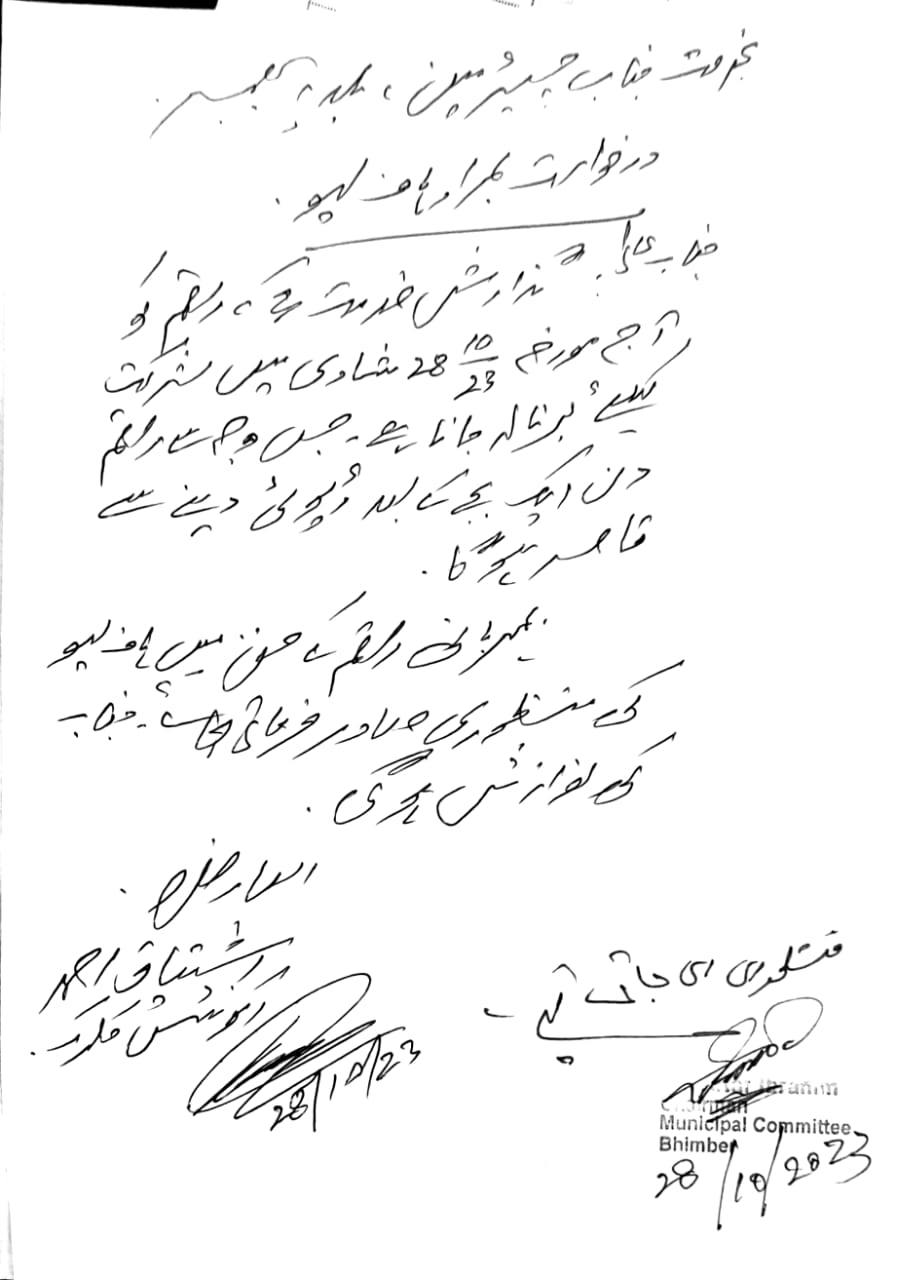 بخدمت جناب چیئرمین، بلدیہ بھمبر
درخواست بمراد ہاف لیو۔
جناب عالی! گزارش خدمت ہے کہ راقم کو
آج مورخہ 28 10/23 شادی میں شرکت
کیلئے برنالہ جانا ہے۔ جس وجہ سے راقم
دن ایک بجے کے بعد ڈیوٹی دینے سے
قاصر ہو گا۔
بمہربانی راقم کے حق میں ہاف لیو
کی منظوری صادر فرمائی جائے۔ جناب
کی نوازش ہو گی۔
العارض
اشتیاق احمد
کلرک۔
28/10/23
منظوری دی جاتی ہے۔
Ibrahim
Chairman
Municipal Committee
Bhimber
28/10/2023